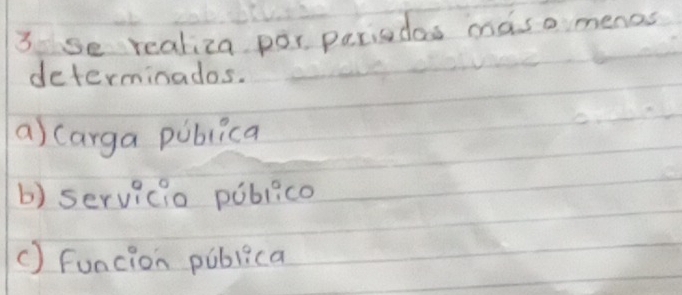 3 se realiza por periodos más o menos
determinados.
a) carga pública
b) servicio público
c) Función pública